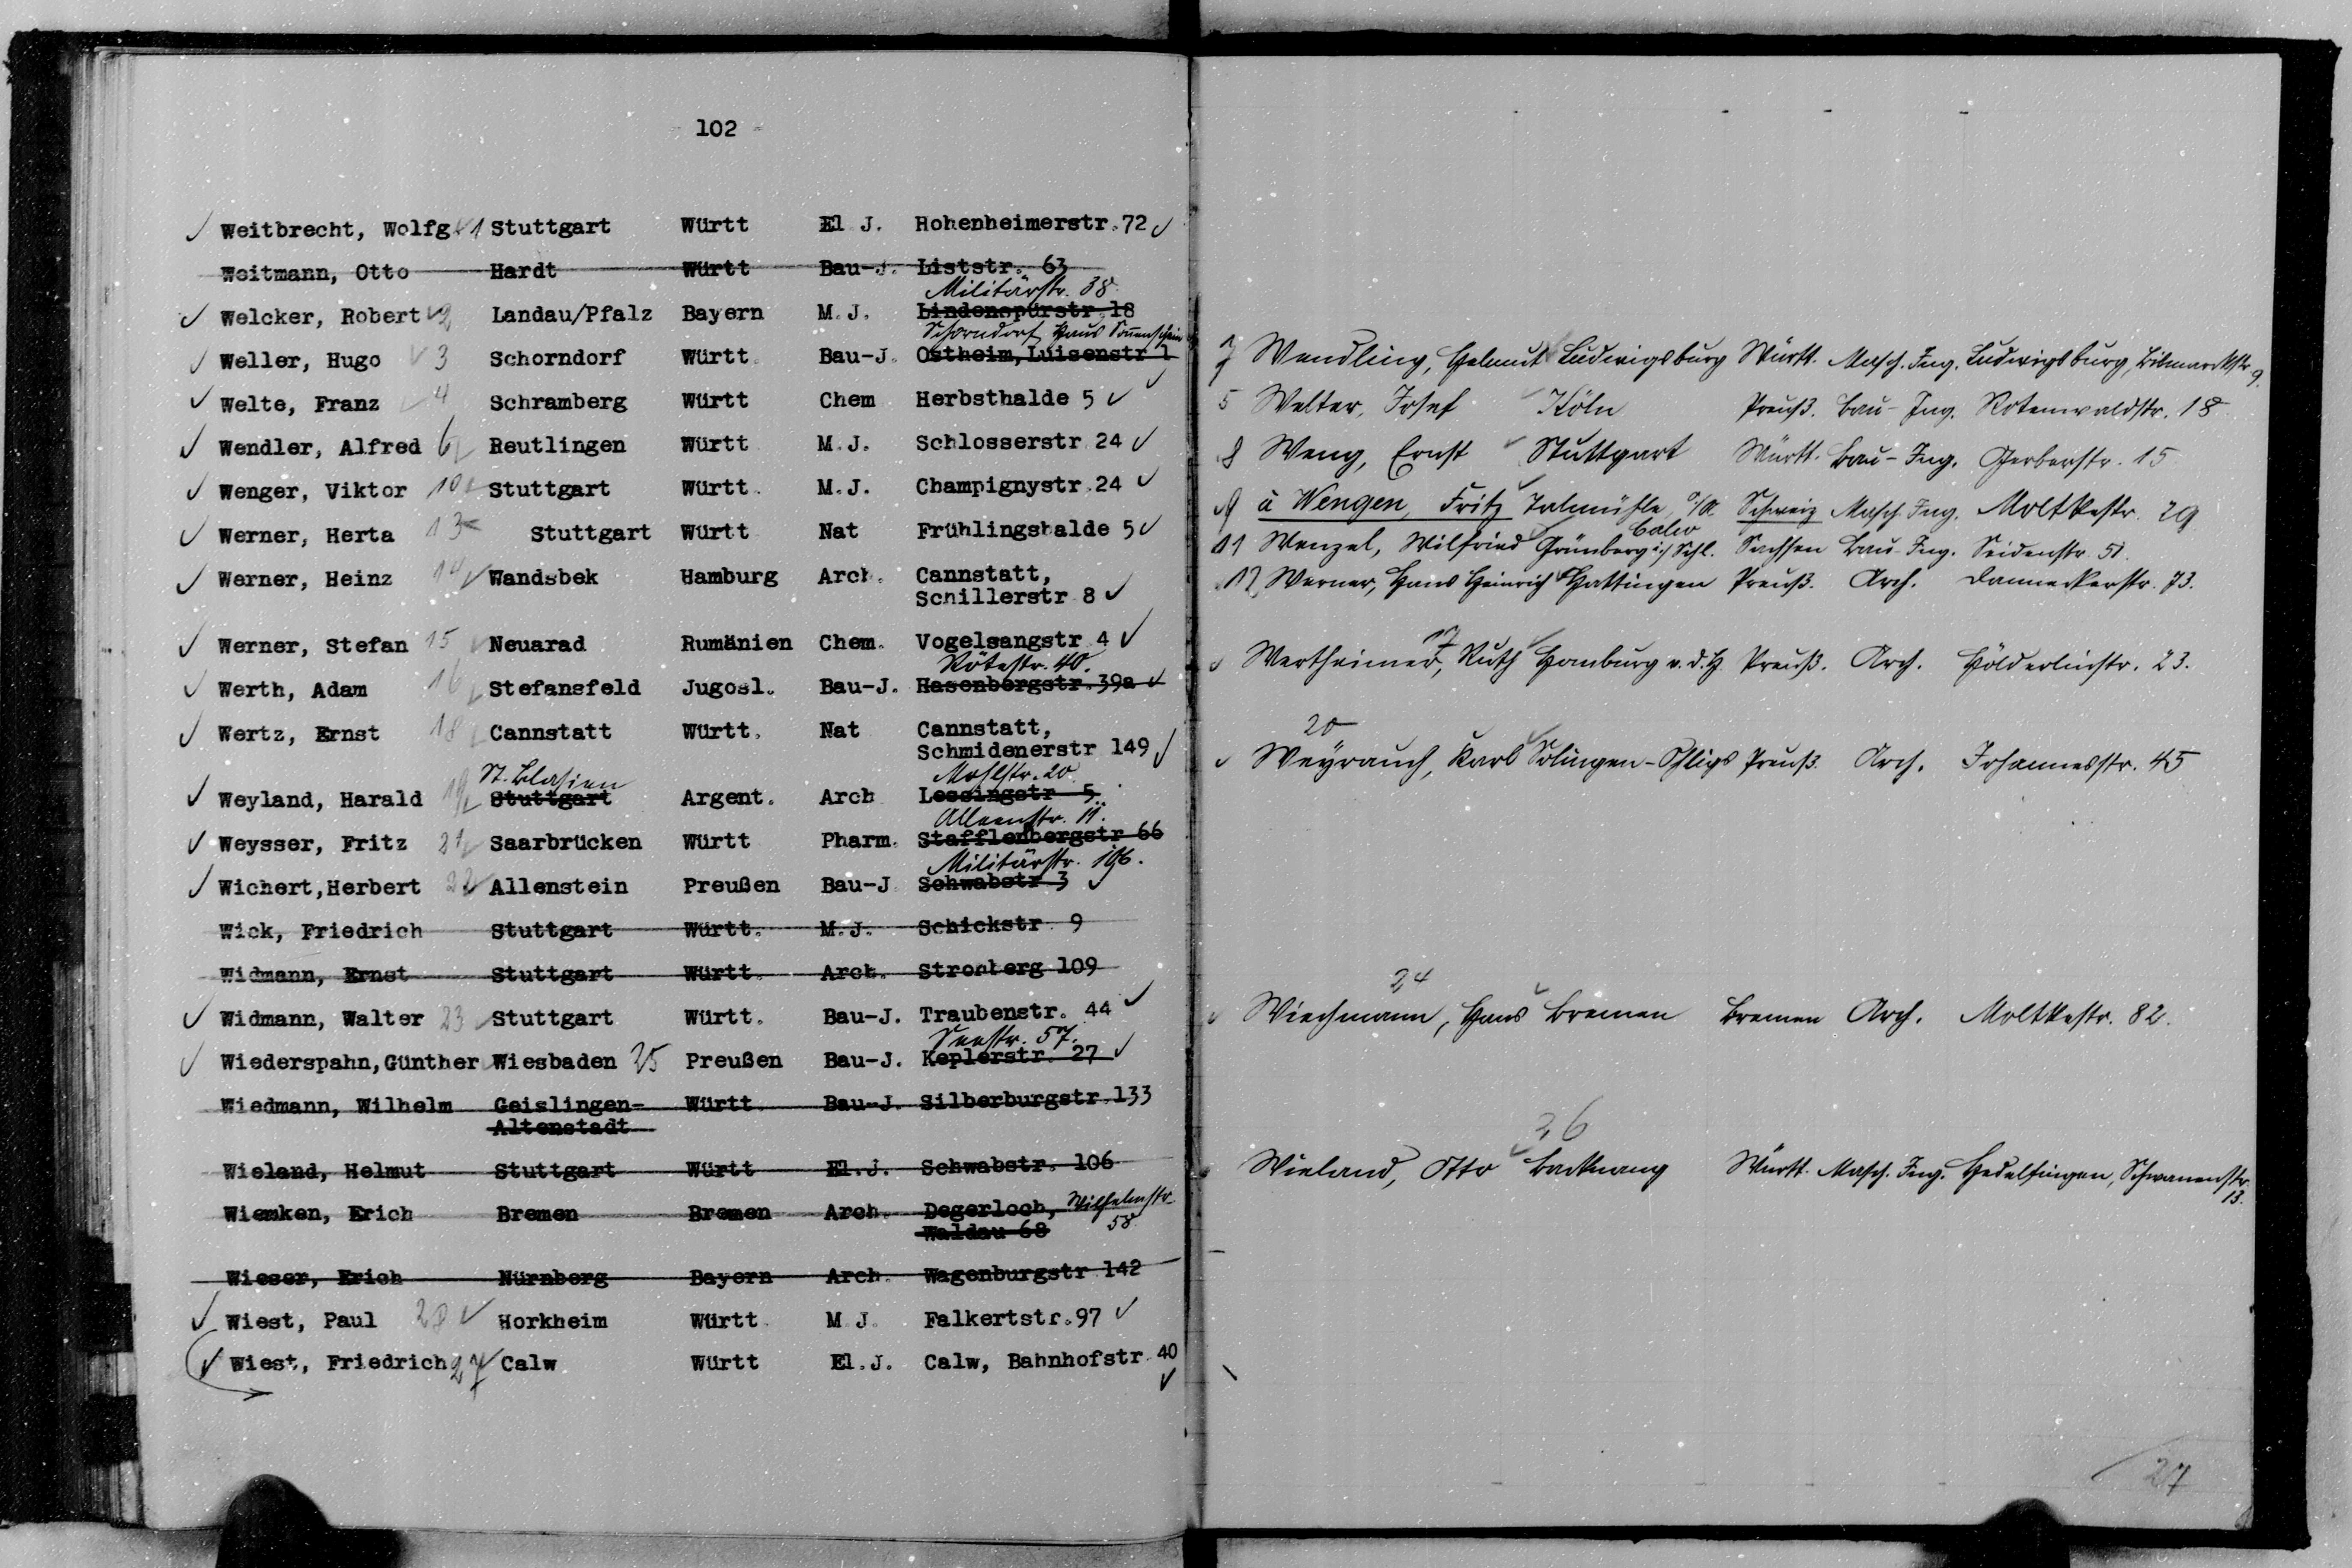 102
Weitbrecht, Wolfg. 1 Stuttgart Württ El J. Hohenheimerstr. 72
Weitmann, Otto Hardt Württ Bau-J. Liststr. 63
Militärstr. 38.
Welcker, Robert 2 Landau/Pfalz Bayern M.J. Lindenspürstr 18
Schorndorf, Haus Sonnenschein
Weller, Hugo 3 Schorndorf Württ Bau-J. Ostheim, Luisenstr 1
Welte, Franz 4 Schramberg Württ Chem Herbsthalde 5
Wendler, Alfred 6 Reutlingen Württ M.J. Schlosserstr 24
Wenger, Viktor 10 Stuttgart Württ. M.J. Champignystr. 24
Werner, Herta 13 Stuttgart Württ Nat Frühlingshalde 5
Werner, Heinz 14 Wandsbek Hamburg Arch. Cannstatt,
Schillerstr 8
Werner, Stefan 15 Neuarad Rumänien Chem. Vogelsangstr 4
Rötestr. 40.
Werth, Adam 16 Stefansfeld Jugosl. Bau-J. Hasenbergstr. 39a
Wertz, Ernst 18 Cannstatt Württ. Nat Cannstatt,
Schmidenerstr 149
St. Blasien Mohlstr. 20
Weyland, Harald 19 Stuttgart Argent. Arch Lessingstr 5
Alleenstr. 11.
Weysser, Fritz 21 Saarbrücken Württ Pharm. Stafflenbergstr 66
Militärstr. 106.
Wichert, Herbert 22 Allenstein Preußen Bau-J Schwabstr 3
Wick, Friedrich Stuttgart Württ. M.J. Schickstr 9
Widmann, Ernst Stuttgart Württ. Arch. Stromberg 109
Widmann, Walter 23 Stuttgart Württ. Bau-J. Traubenstr. 44
Seestr. 57.
Wiederspahn, Günther Wiesbaden 25 Preußen Bau-J. Keplerstr. 27
Wiedmann, Wilhelm Geislingen- Württ Bau-J. Silberburgstr. 133
Altenstadt
Wieland, Helmut Stuttgart Württ El.J. Schwabstr. 106
Wiemken, Erich Bremen Bremen Arch. Degerloch, Wilhelmstr.
Waldau 68 58
Wieser, Erich Nürnberg Bayern Arch. Wagenburgstr 142
Wiest, Paul 28 Horkheim Württ M J. Falkertstr. 97
Wiest, Friedrich 27 Calw Württ El.J. Calw, Bahnhofstr 40
7 Wendling, Helmut Ludwigsburg Württ. Masch. Ing. Ludwigsburg, Bismarckstr. 9.
5 Welter, Josef Köln Preuß. Bau-Ing. Rotenwaldstr. 18
8 Weng, Ernst Stuttgart Württ. Bau-Ing. Gerberstr. 15
9 à Wengen, Fritz Talmühle, O/A. Schweiz Masch. Ing. Moltkestr. 29
Calw
11 Wenzel, Wilfried Grünberg i/Schl. Sachsen Bau-Ing. Seidenstr. 51.
12 Werner, Hans Heinrich Hattingen Preuß. Arch. Danneckerstr. 73.
17
Wertheimer, Ruth Homburg v.d.H Preuß. Arch. Hölderlinstr. 23.
20
Weyrauch, Karl Solingen-Ohligs Preuß. Arch. Johannesstr. 45
24
Wiechmann, Hans Bremen Bremen Arch. Moltkestr. 82.
26
Wieland, Otto Backnang Württ. Masch. Ing. Hedelfingen, Schwanenstr.
13.
27